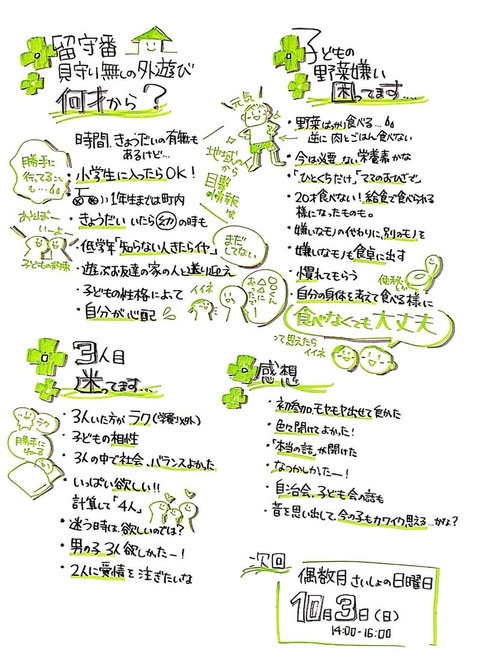 留守番
見守り無しの外遊び
何才から?
時間、きょうだいの有無も
あるけど…
勝手に
行ってること
も…
・小学生に入ったらOK!
1年生までは町内
あそぼー
いーよー
子どもの約束
・きょうだいいたら幼の時も
・低学年「知らない人きたらイヤ…」
まだ
してない
・遊ぶお友達の家の人と送り迎え
・子どもの性格によって
イイネ
・自分が心配
元気
地域の人から
目撃の情報
子どもの
野菜嫌い
困ってます…
・野菜ばっかり食べる…
逆に肉とごはん食べない
・今は必要ない栄養素かな
・「ひとくちだけ」「ママのおひざで」
・20才食べない!給食で食べられる
様になったものも。
・嫌いなモノの代わりに、別のモノを
・嫌いなモノも食卓に出す
・慣れてもらう
・自分の身体を考えて食べる様に
食べなくても大丈夫
って思えたら
イイネ
3人目
迷ってます…
ラク
勝手に
・3人いた方がラク(学費以外)
・子どもの相性
・3人の中で社会、バランスよかった
・いっぱい欲しい!!
計算して「4人」
・迷う時は、欲しいのでは?
・男の子3人欲しかったー!
・2人に愛情を注ぎたいな
感想
・初参加、モヤモヤ出せて良かった
・色々聞けてよかった!
・「本当の話」が聞けた
・なつかしかったー!
・自治会、子ども会の話も
・昔を思い出して、今の子もカワイク思える…かな?
次回
偶数月さいしょの日曜日
10月3日(日)
14:00-16:00